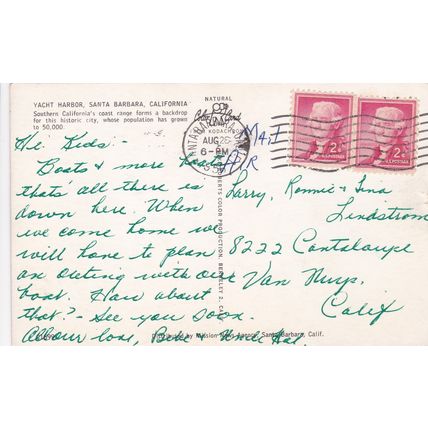 YACHT HARBOR, SANTA BARBARA, CALIFORNIA
Southern California's coast range forms a backdrop
for this historic city, whose population has grown
to 50,000.
Hi Kids:-
Boats & more boats
thats all there is
down here. When
we come home we
will have to plan
an outing with our
boat. How about
that? - See you soon.
All our love, & Uncle Hal
NATURAL
Color
KODACHROME
SANTA BARBARA
AUG 26
6-PM
2¢
U.S. POSTAGE
2¢
U.S. POSTAGE
AIR MAIL
COLOR PRODUCTION, BERKELEY 2, CAL
Larry, Ronnie & Tina
Lindstrom
8222 Cantaloupe
Van Nuys,
Calif
Distributed by Mission News Agency, Santa Barbara, Calif.